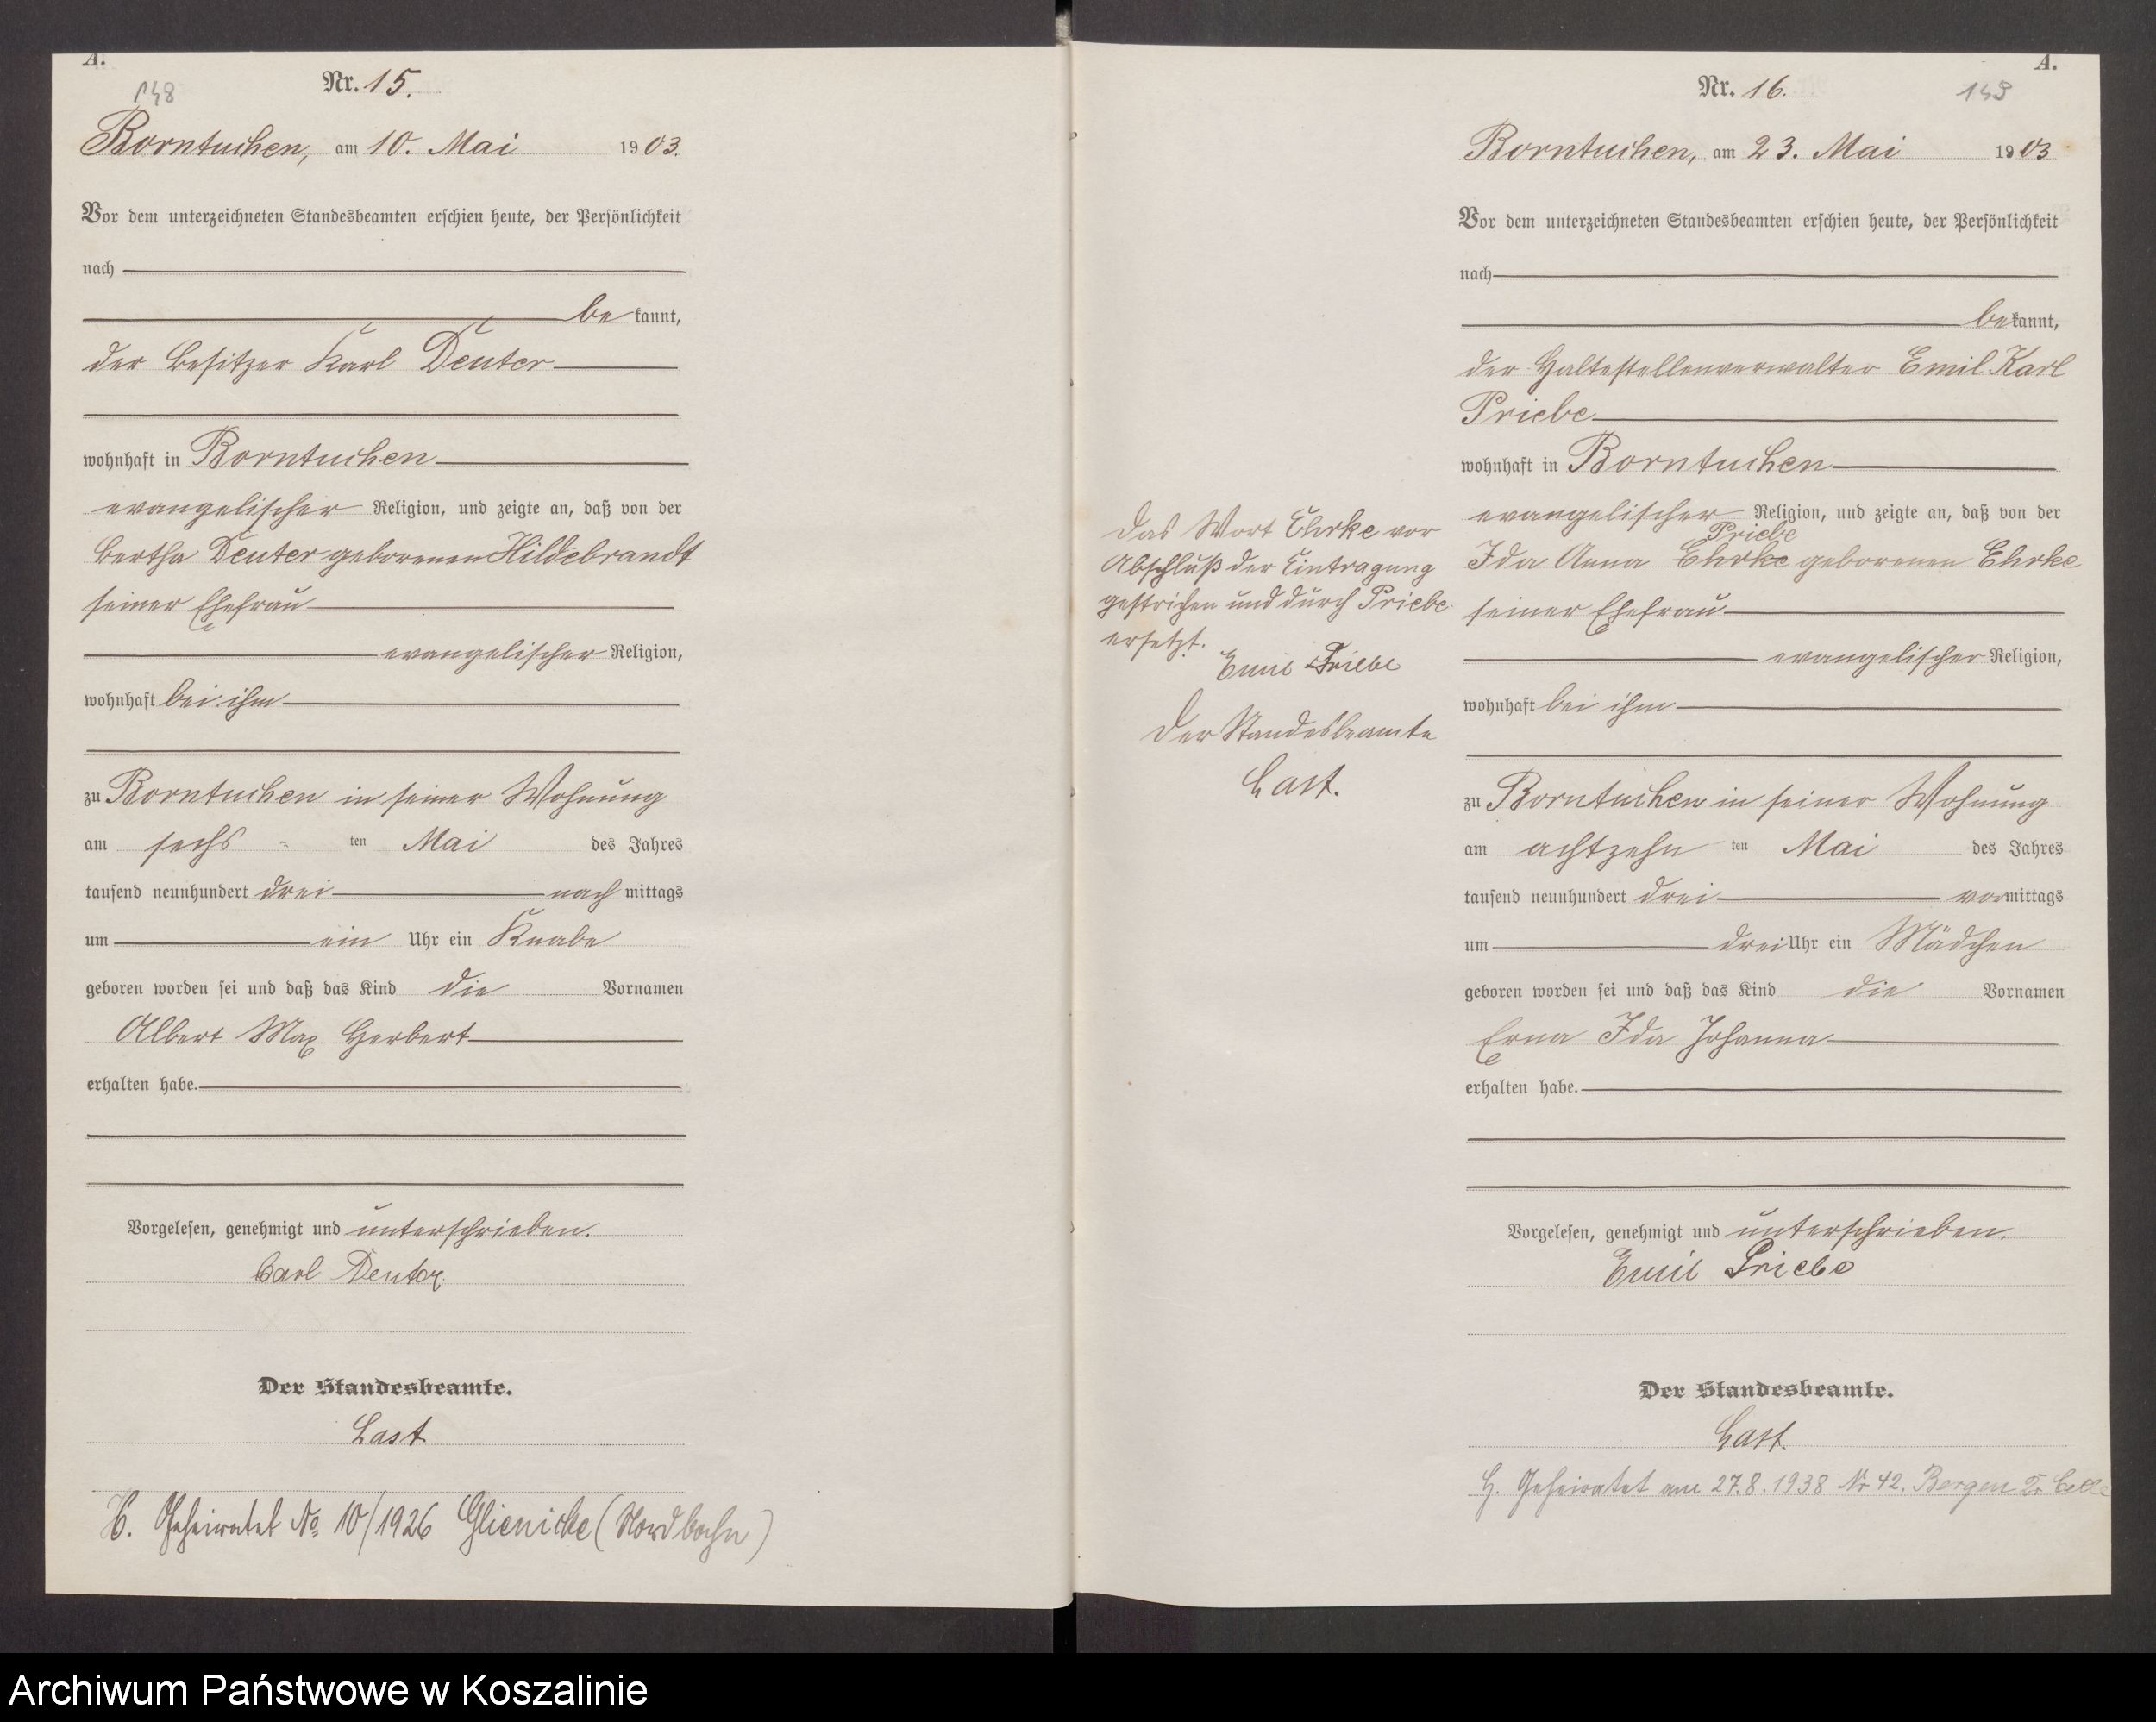 A.
148
Nr. 15.
Borntuchen, am 10. Mai 1903.
Vor dem unterzeichneten Standesbeamten erschien heute, der Persönlichkeit
nach
bekannt,
der Besitzer Karl Deuter
wohnhaft in Borntuchen
evangelischer Religion, und zeigte an, daß von der
Bertha Deuter geborenen Hildebrandt
seiner Ehefrau
evangelischer Religion,
wohnhaft bei ihm
zu Borntuchen in seiner Wohnung
am sechs = ten Mai des Jahres
tausend neunhundert drei nachmittags
um ein Uhr ein Knabe
geboren worden sei und daß das Kind die Vornamen
Albert Max Herbert
erhalten habe.
Vorgelesen, genehmigt und unterschrieben.
Carl Deuter
Der Standesbeamte.
Last
Geheiratet No 10/1926 Glienicke (Nordbahn)
A.
Nr. 16.
149
Borntuchen, am 23. Mai 1903
Vor dem unterzeichneten Standesbeamten erschien heute, der Persönlichkeit
nach
bekannt,
der Haltestellenverwalter Emil Karl
Priebe
wohnhaft in Borntuchen
evangelischer Religion, und zeigte an, daß von der
Priebe
Ida Anna Ehrke geborenen Ehrke
seiner Ehefrau
evangelischer Religion,
wohnhaft bei ihm
zu Borntuchen in seiner Wohnung
am achtzehn ten Mai des Jahres
tausend neunhundert drei vormittags
um drei Uhr ein Mädchen
geboren worden sei und daß das Kind die Vornamen
Erna Ida Johanna
erhalten habe.
Vorgelesen, genehmigt und unterschrieben.
Emil Priebe
Der Standesbeamte.
Last.
H. Geheiratet am 27.8.1938 Nr 42. Bergen Celle
Das Wort Ehrke vor
Abschluß der Eintragung
gestrichen und durch Priebe
ersetzt.
Emil Priebe
Der Standesbeamte
Last.
Archiwum Państwowe w Koszalinie